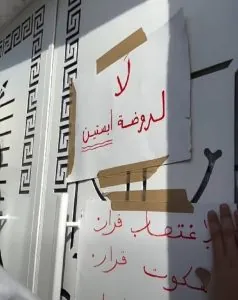 لا
لروضة ابستين
لاغتصاب قرار
سكوت قرار